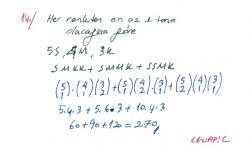 14-) Her renkten en az 1 tane
olacağına göre
5S, 4M, 3K
SMKK + SMMK + SSMK
(5 1)·(4 1)(3 2) + (5 1)(4 2)·(3 1) + (5 2)(4 1)(3 1)
5.4.3 + 5.6.3 + 10.4.3
60+90+120 = 270
CEVAP: C